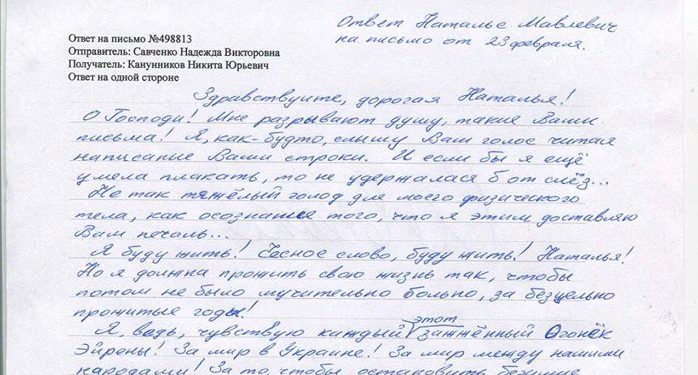 Ответ Наталье Мавлевич
на письмо от 23 февраля.
Ответ на письмо №498813
Отправитель: Савченко Надежда Викторовна
Получатель: Канунников Никита Юрьевич
Ответ на одной стороне
Здравствуйте, дорогая Наталья!
О Господи! Мне разрывают душу, такие Ваши
письма! Я, как-будто, слышу Ваш голос читая
написаные Ваши строки. И если бы я ещё
умела плакать, то не удержалася б от слёз...
Не так тяжёлый голод для моего физического
тела, как осознание того, что я этим доставляю
Вам печаль...
Я буду жить! Чесное слово, буду жить! Наталья!
Но я должна прожить свою жизнь так, чтобы
потом не было мучительно больно, за безцельно
прожитые годы!
Я, ведь, чувствую каждый этот зажжённый Огонёк
Эйрены! За мир в Украине! За мир между нашими
народами! За то, чтобы остановить